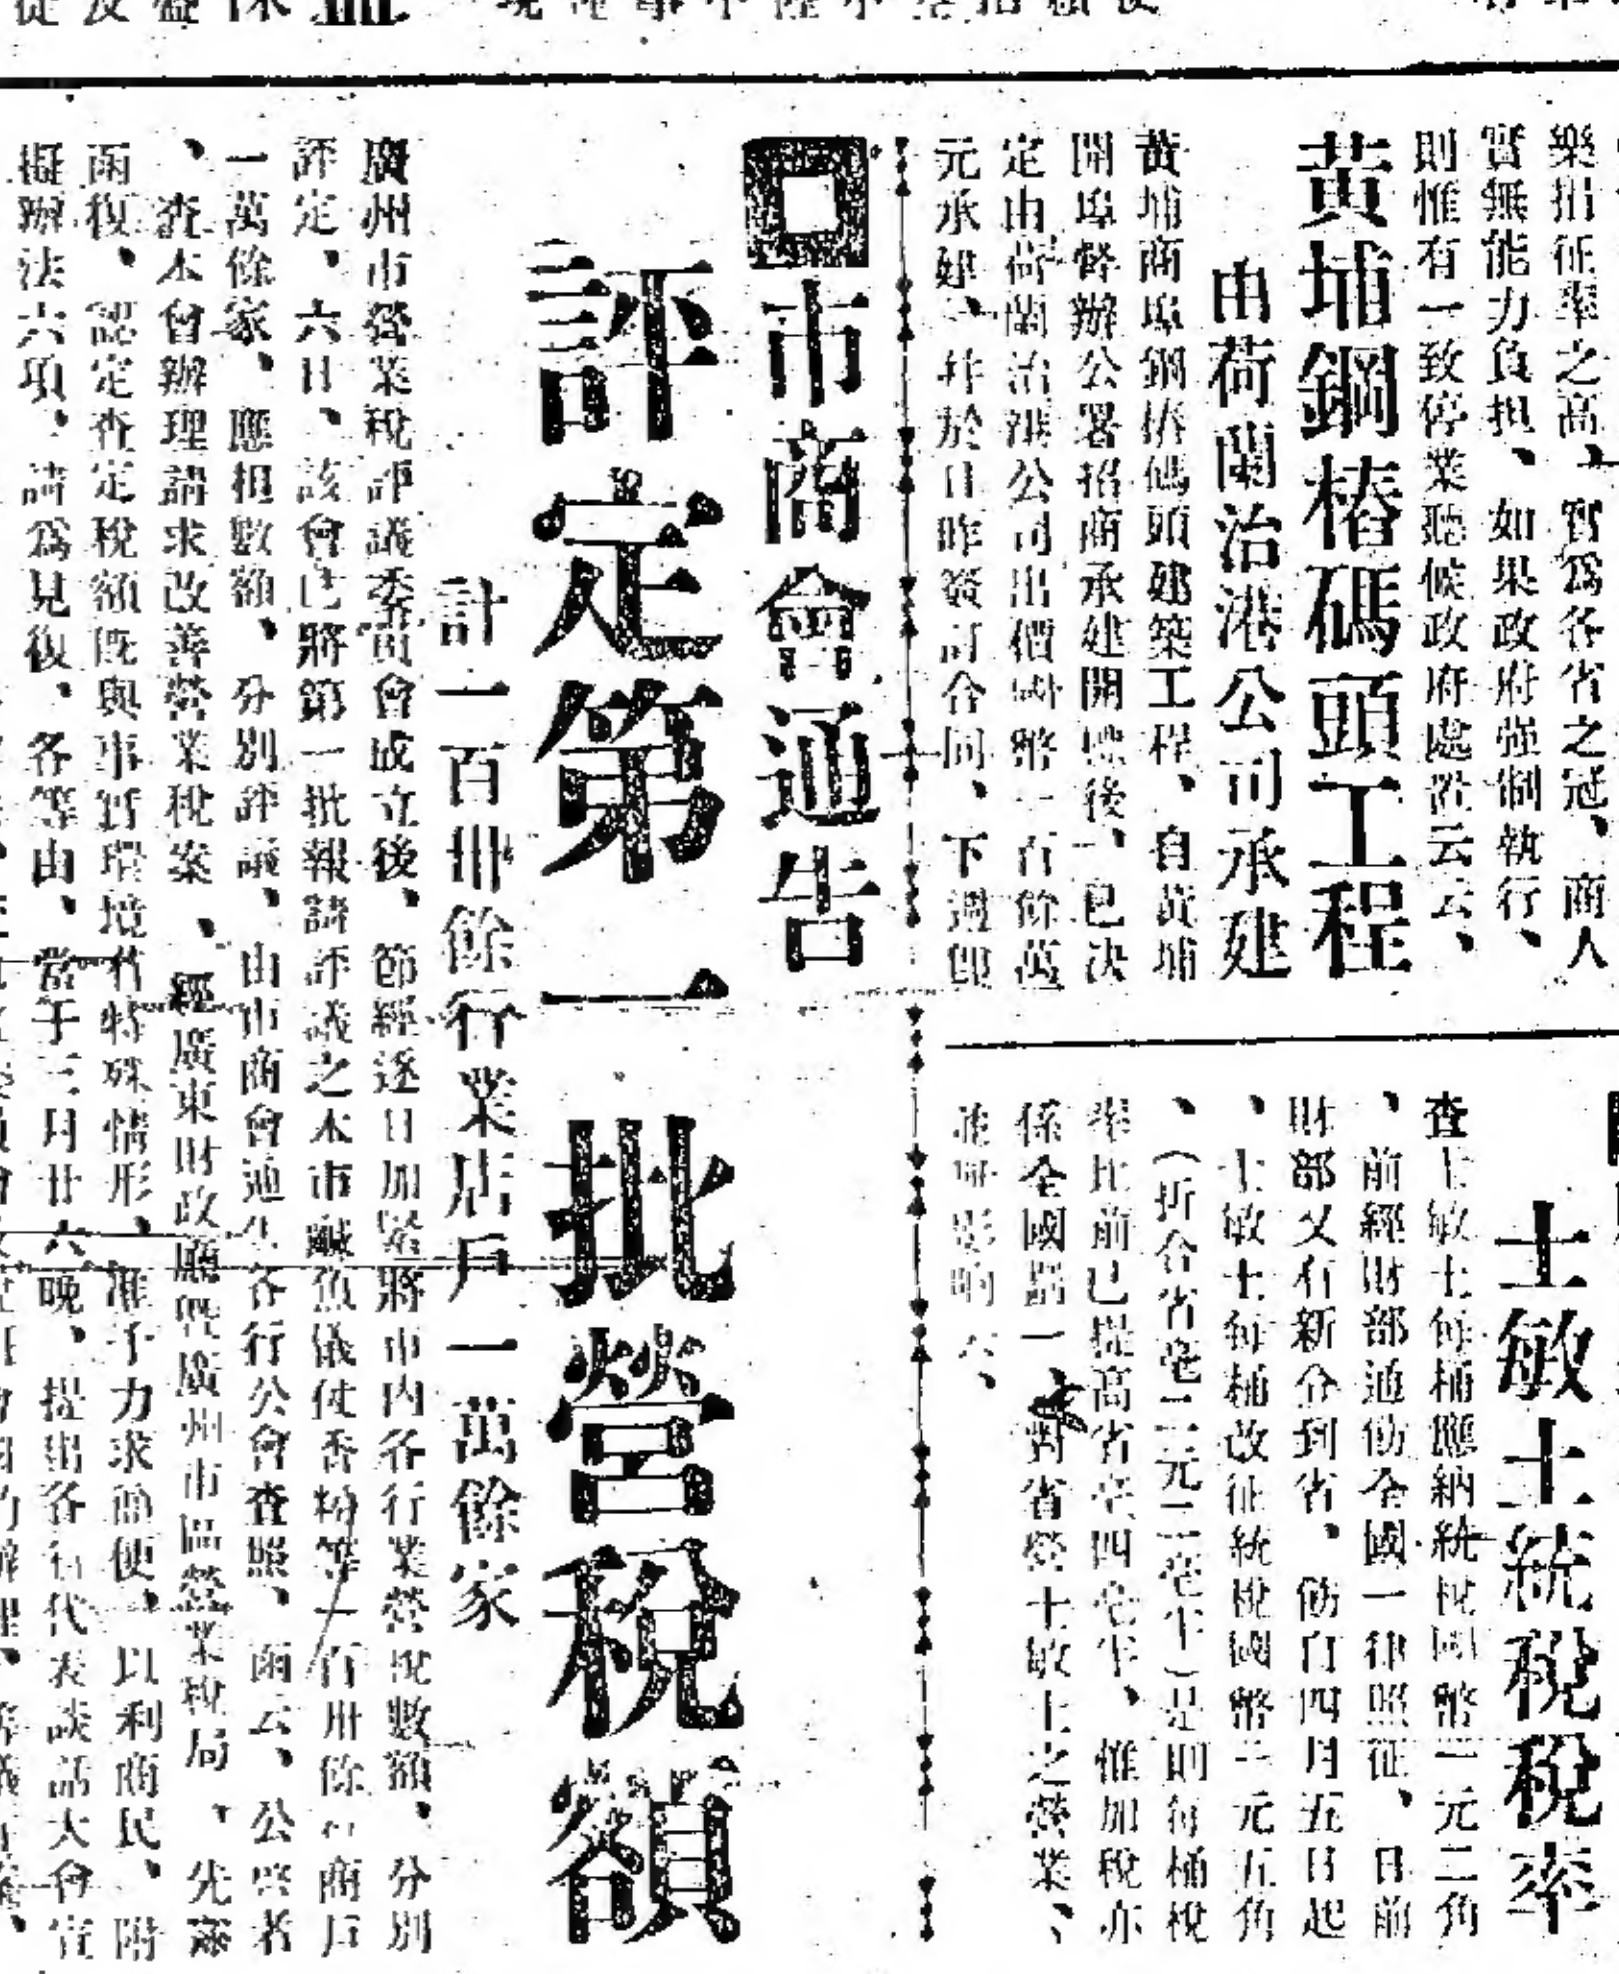 樂捐征率之高、實爲各省之冠、商人
實無能力負担、如果政府强制執行、
則惟有一致停業聽候政府處置云云、
黃埔鋼樁碼頭工程
由荷蘭治港公司承建
黃埔商埠鋼樁碼頭建築工程、自黃埔
開埠督辦公署招商承建開標後、已决
定由荷蘭治港公司出價國幣一百餘萬
元承建、并於日昨簽訂合同、下週卽
士敏土統稅稅率
查士敏土每桶應納統稅國幣一元二角
、前經財部通飭全國一律照征、日前
財部又有新令到省、飭自四月五日起
、士敏土每桶改征統稅國幣一元五角
、(折合省毫二元二毫半)是則每桶稅
率比前已提高省毫四毫半、惟加稅亦
係全國劃一、對省營士敏土之營業、
並無影响云、
市商會通告
評定第一批營稅額
計一百卅餘行業店戶一萬餘家
廣州市營業稅評議委員會成立後、節經逐日加緊將市內各行業營稅數額、分別
評定、六日、該會已將第一批報請評議之本市鹹魚儀仗香粉等一百卅餘行商戶
一萬餘家、應担數額、分別評議、由市商會通告各行公會查照、函云、公啓者
、查本會辦理請求改善營業稅案、經廣東財政廳曁廣州市區營業稅局、先後
函復、認定查定稅額旣與事實環境有特殊情形、准予力求簡便、以利商民、附
擬辦法六項、請爲見復、各等由、當于三月廿六晚、提出各行代表談話大會宣